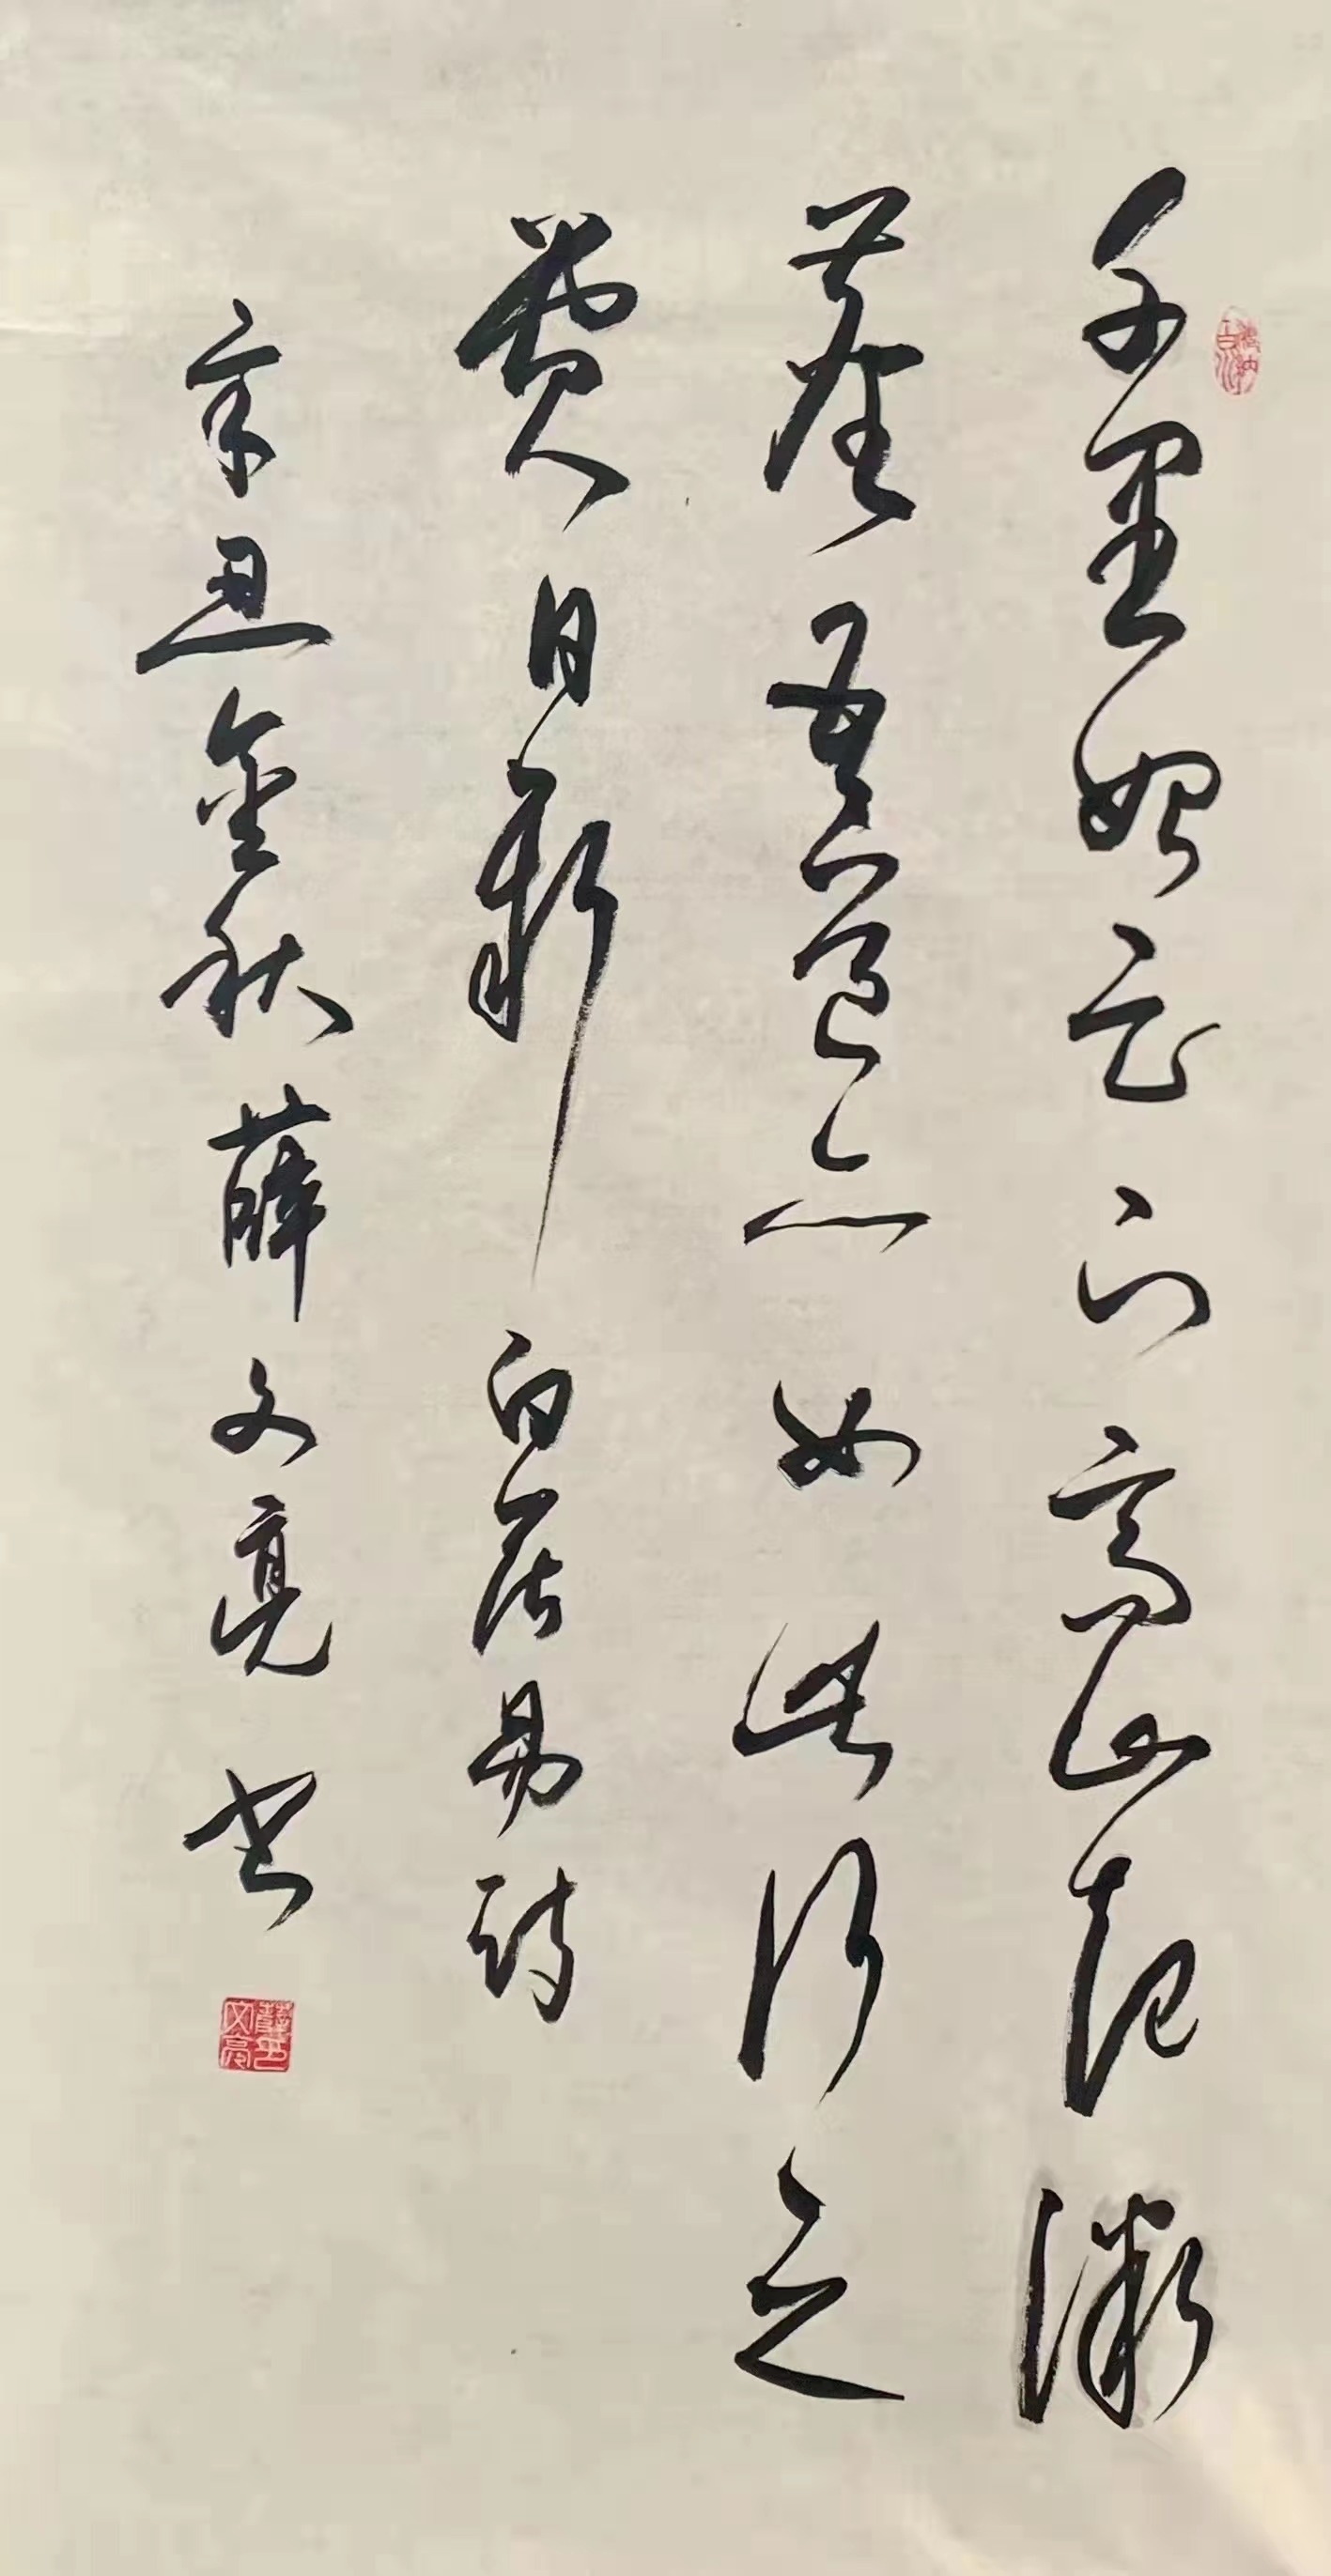 千里始足下高山起微
尘吾道亦如此行之
贵日新白居易诗
辛丑金秋薛文亮书
薛文亮印